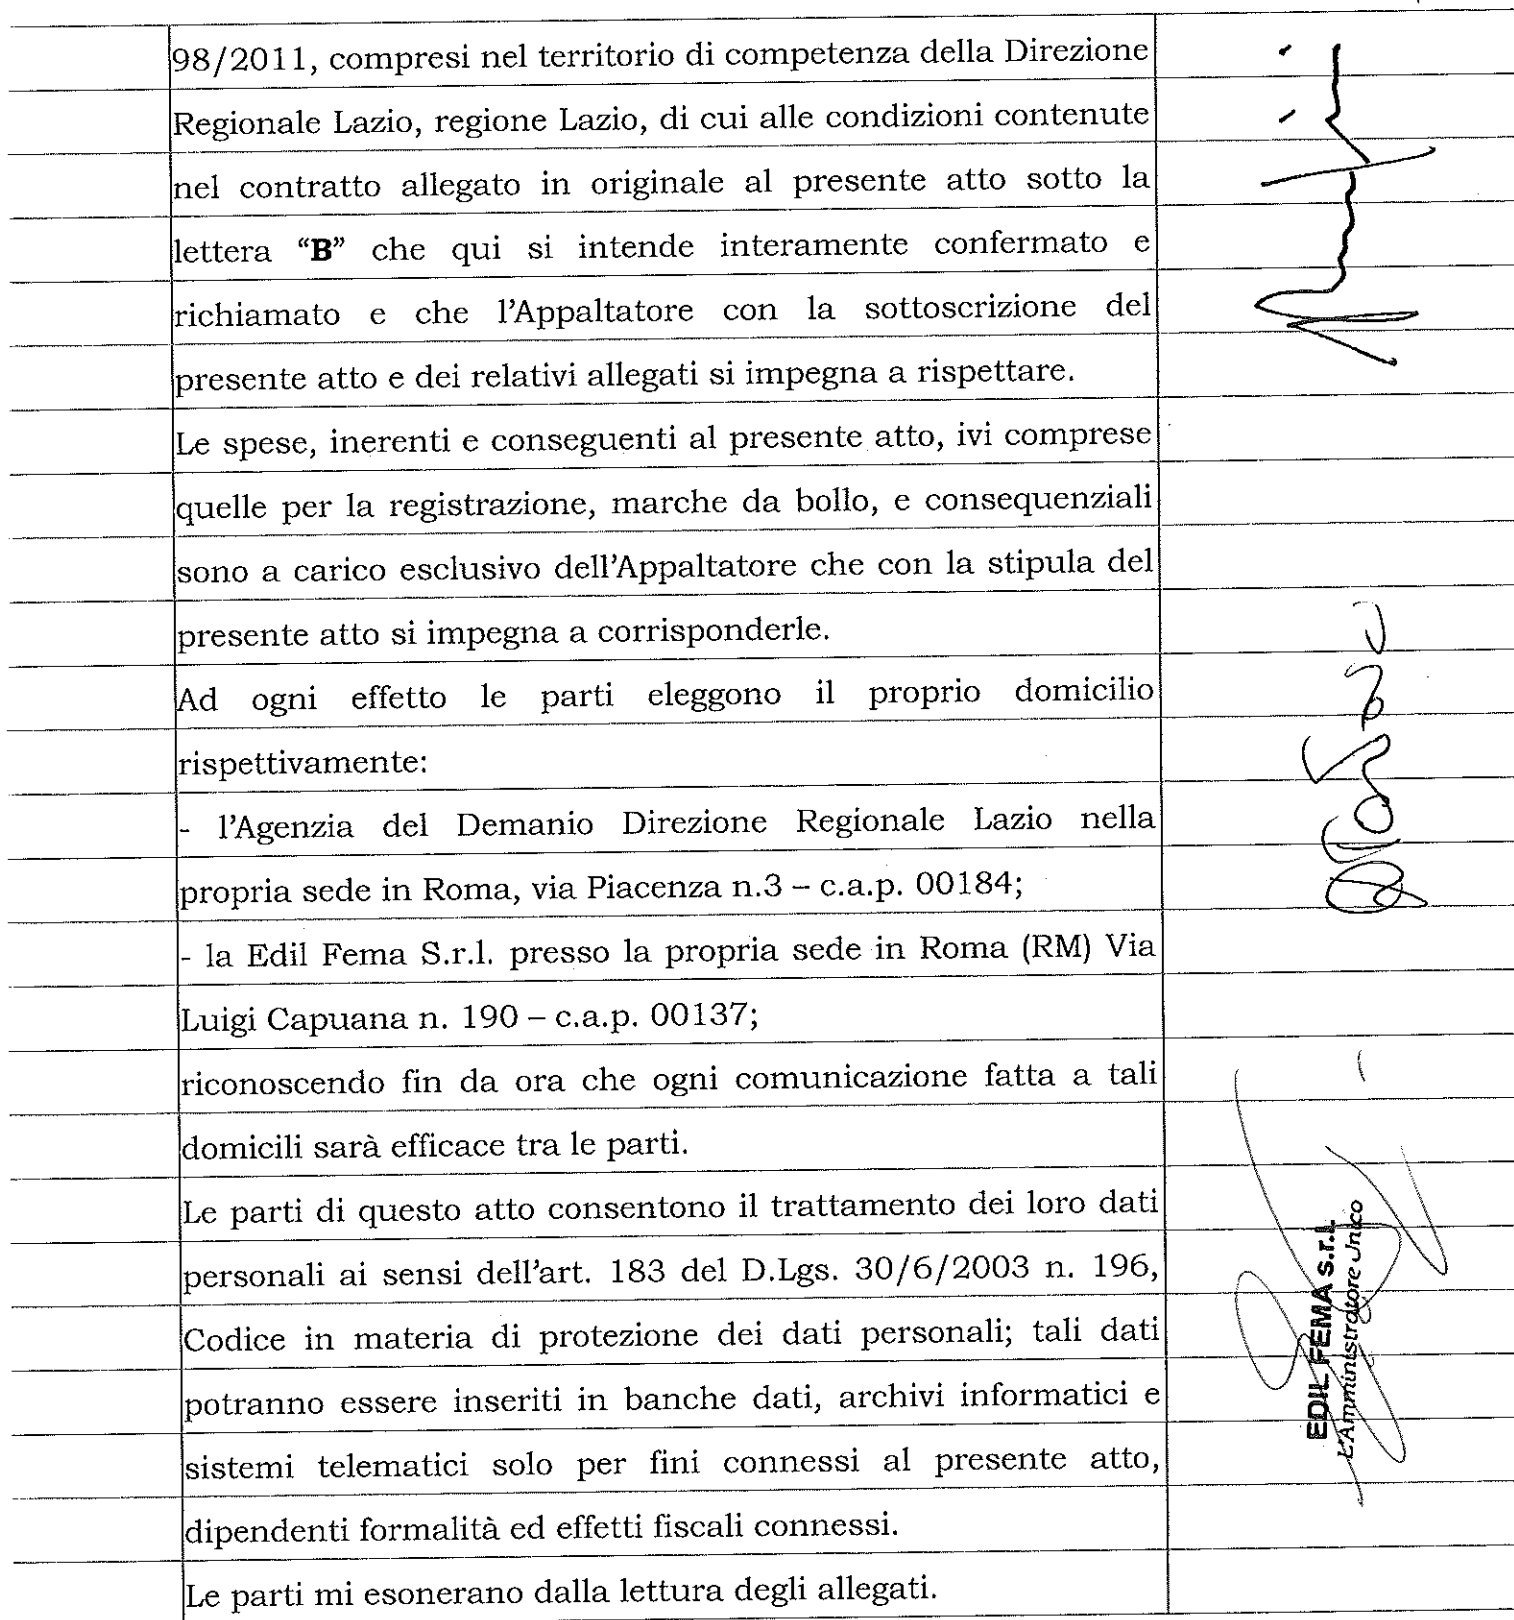 98/2011, compresi nel territorio di competenza della Direzione
Regionale Lazio, regione Lazio, di cui alle condizioni contenute
nel contratto allegato in originale al presente atto sotto la
lettera “B” che qui si intende interamente confermato e
richiamato e che l'Appaltatore con la sottoscrizione del
presente atto e dei relativi allegati si impegna a rispettare.
Le spese, inerenti e conseguenti al presente atto, ivi comprese
quelle per la registrazione, marche da bollo, e consequenziali
sono a carico esclusivo dell'Appaltatore che con la stipula del
presente atto si impegna a corrisponderle.
Ad ogni effetto le parti eleggono il proprio domicilio
rispettivamente:
- l'Agenzia del Demanio Direzione Regionale Lazio nella
propria sede in Roma, via Piacenza n.3 – c.a.p. 00184;
- la Edil Fema S.r.l. presso la propria sede in Roma (RM) Via
Luigi Capuana n. 190 – c.a.p. 00137;
riconoscendo fin da ora che ogni comunicazione fatta a tali
domicili sarà efficace tra le parti.
Le parti di questo atto consentono il trattamento dei loro dati
personali ai sensi dell'art. 183 del D.Lgs. 30/6/2003 n. 196,
Codice in materia di protezione dei dati personali; tali dati
potranno essere inseriti in banche dati, archivi informatici e
sistemi telematici solo per fini connessi al presente atto,
dipendenti formalità ed effetti fiscali connessi.
Le parti mi esonerano dalla lettura degli allegati.
EDIL FEMA s.r.l.
L'Amministratore Unico